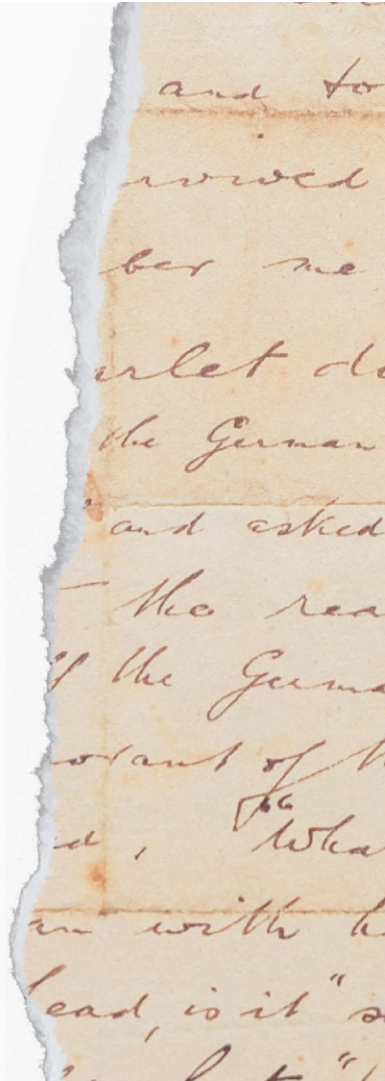 and to
rvived
ber me
arlet d
the German
" and asked
the rea
of the Germa
norant of th
d, "Wha
an with h
ead, is it" s